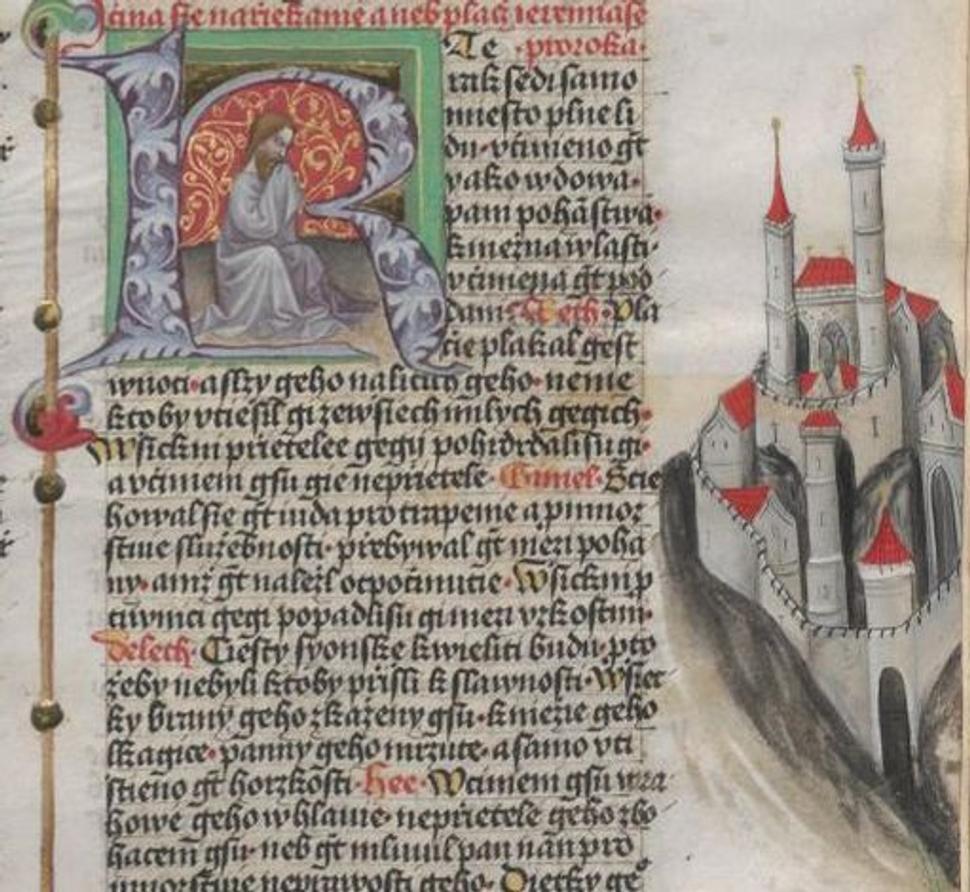 čina ke nařiekanie aneb plač ieremiaše
Te proroka
rak sedi samo
miesto plne li
du vcinieno gt
yako wdowa
pani pohanstwa
kniežna wlasti
vciniena gt pod
dani Beth Pla
čie plakal gest
wnoci a slzy geho na licich geho nenie
ktoby vtiešil gi ze wšiech milych gegich
Wšickni přietelee gegij pohrdrdali su gi
a vcinieni gsu gie nepřietele Gimel Stie
howal sie gt iuda pro trapenie a pro mnoz
stwie služebnosti přebywal gt mezi poha
ny aniž gt nalezl otpočinutie Wšickni p
tiwnici gegi popadli su gi mezi vzkostmi
Deleth Ciesty syonske kwieliti budu pro
žeby nebyli ktoby přišli k slawnosti Wšiec
ky brany geho zkaženy gsu kniežie geho
lkagice panny geho mrzute a samo vti
štieno gt horzkosti Hee Wcinieni gsu wra
howe geho w hlawie nepřietele geho zbo
haceni gsu neb gt mluwil pan nan pro
mnozstwie neprawosti geho Dietky ge